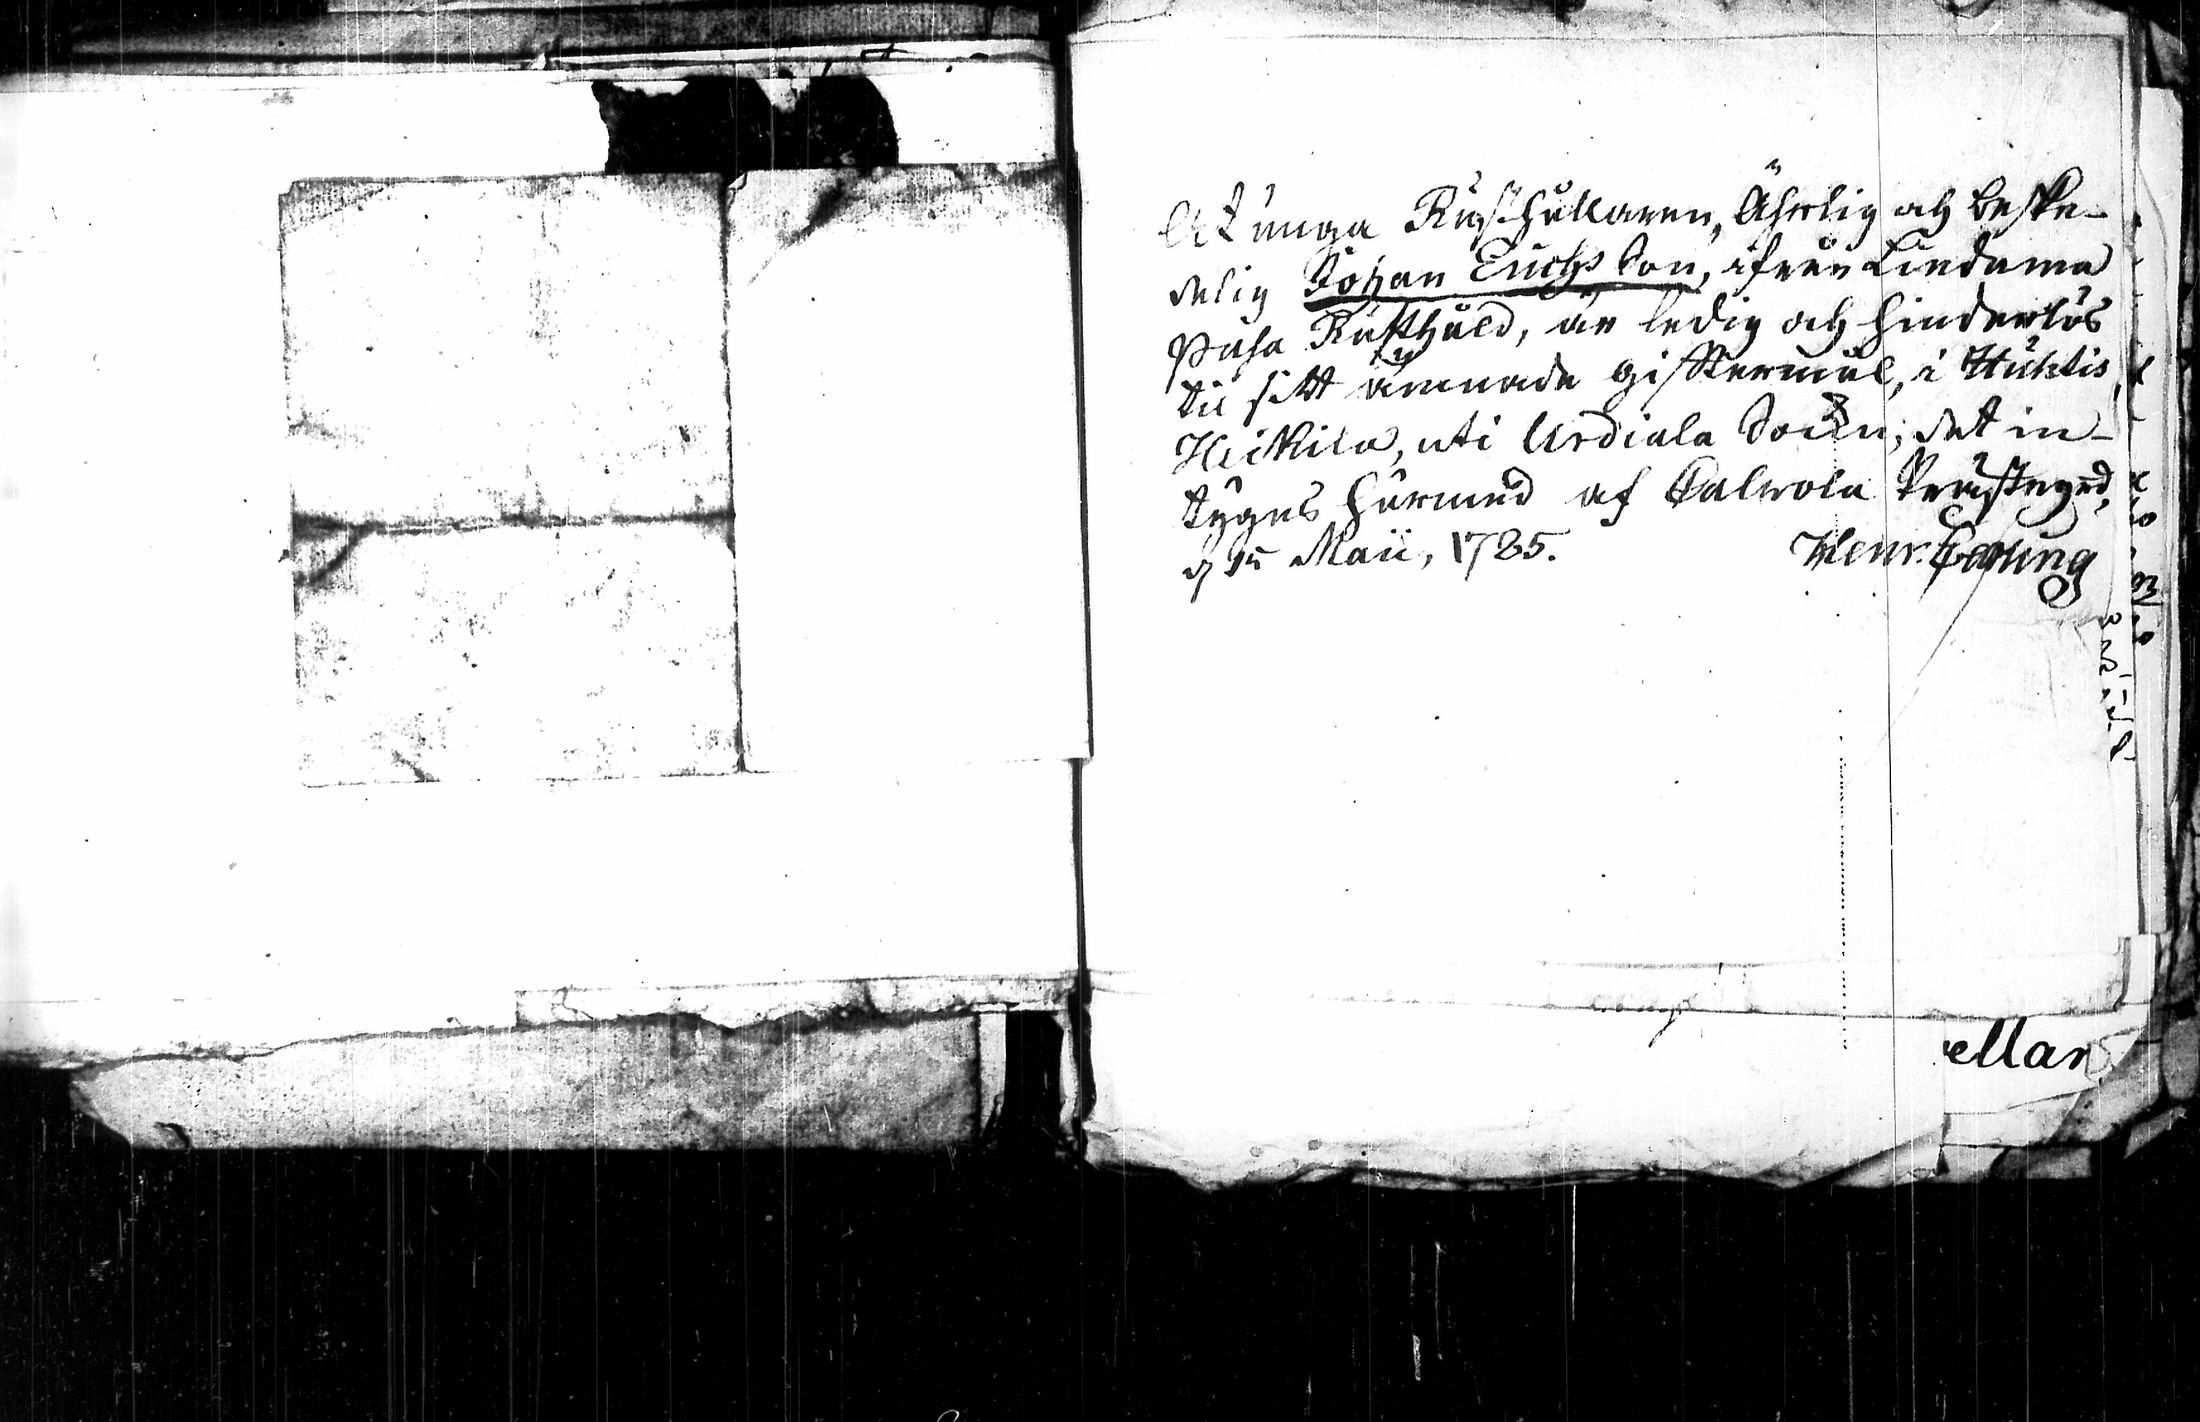 At unga Rusthållaren, Ährlig och beske-
delig Johan Erichs Son, ifrån Lindama
Paha Rusthåld, är ledig och hinderlös
til sitt ämnade gifftermål, i Huhtis,
Heikila, uti Urdiala Sochn; det in-
tyges härmed af Calvola Prästegd,
d 15 Maii, 1785. Henr.
ellan